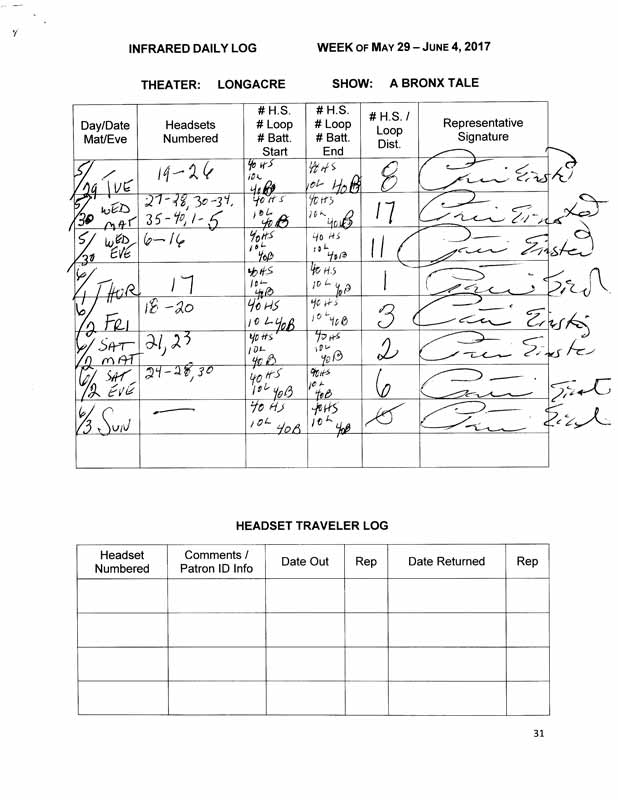 INFRARED DAILY LOG WEEK OF MAY 29 – JUNE 4, 2017
THEATER: LONGACRE SHOW: A BRONX TALE
Day/Date Mat/Eve Headsets Numbered # H.S. # Loop # Batt. Start # H.S. # Loop # Batt. End # H.S. / Loop Dist. Representative Signature
5/29 TUE 19-26 40 HS 10L 40B 40 HS 10L 40B 8
5/30 WED MAT 27-28, 30-34, 35-40, 1-5 40 HS 10L 40B 40 HS 10L 40B 17
5/30 WED EVE 6-16 40HS 10L 40B 40 HS 10L 40B 11
6/1 THUR 17 40HS 10L 40B 40 HS 10L 40B 1
6/2 FRI 18-20 40HS 10L 40B 40 HS 10L 40B 3
6/2 SAT MAT 21, 23 40HS 10L 40B 40 HS 10L 40B 2
6/2 SAT EVE 24-28, 30 40HS 10L 40B 40HS 10L 40B 6
6/3 SUN — 40 HS 10L 40B 40HS 10L 40B 0
HEADSET TRAVELER LOG
Headset Numbered Comments / Patron ID Info Date Out Rep Date Returned Rep
31